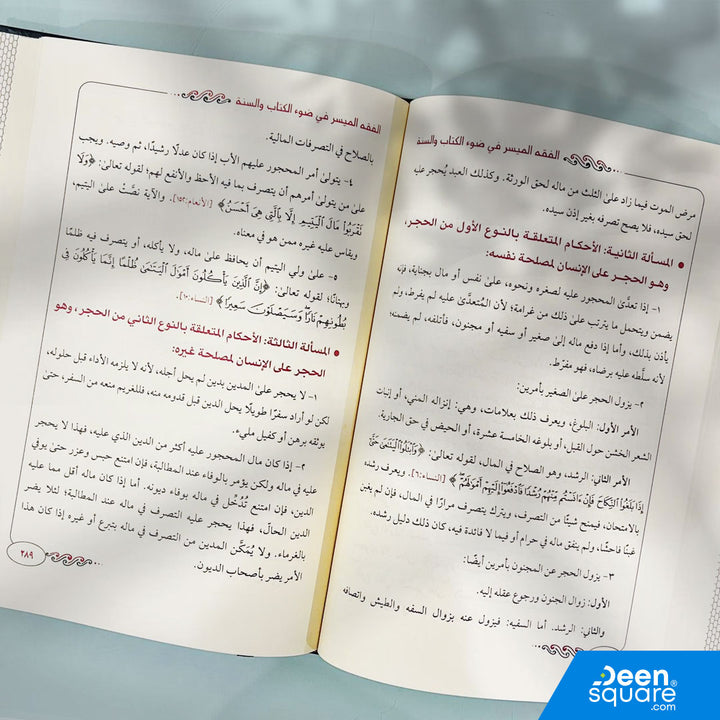 الفقه الميسر في ضوء الكتاب والسنة
مرض الموت فيما زاد علىٰ الثلث من ماله لحق الورثة. وكذلك العبد يُحجر عليه
لحق سيده، فلا يصح تصرفه بغير إذن سيده.
• المسألة الثانية: الأحكام المتعلقة بالنوع الأول من الحجر،
وهو الحجر على الإنسان لمصلحة نفسه:
١- إذا تعدَّىٰ المحجور عليه لصغره ونحوه، علىٰ نفس أو مال بجناية، فإنه
يضمن ويتحمل ما يترتب علىٰ ذلك من غرامة؛ لأن المُتعدَّىٰ عليه لم يفرط، ولم
يأذن بذلك، وأما إذا دفع ماله إلىٰ صغير أو سفيه أو مجنون، فأتلفه، لم يضمنه؛
لأنه سلَّطه عليه برضاه، فهو مفرِّط.
٢- يزول الحجر علىٰ الصغير بأمرين:
الأمر الأول: البلوغ، ويعرف ذلك بعلامات، وهي: إنزاله المني، أو إنبات
الشعر الخشن حول القبل، أو بلوغه الخامسة عشرة، أو الحيض في حق الجارية.
الأمر الثاني: الرشد، وهو الصلاح في المال، لقوله تعالىٰ: ﴿وَابْتَلُوا الْيَتَامَىٰ حَتَّىٰ
إِذَا بَلَغُوا النِّكَاحَ فَإِنْ آنَسْتُمْ مِنْهُمْ رُشْدًا فَادْفَعُوا إِلَيْهِمْ أَمْوَالَهُمْ﴾ [النساء:٦]. ويعرف رشده
بالامتحان، فيمنح شيئًا من التصرف، ويترك يتصرف مرارًا في المال، فإن لم يغبن
غبنًا فاحشًا، ولم ينفق ماله في حرام أو فيما لا فائدة فيه، كان ذلك دليل رشده.
٣- يزول الحجر عن المجنون بأمرين أيضًا:
الأول: زوال الجنون ورجوع عقله إليه.
والثاني: الرشد. أما السفيه: فيزول عنه بزوال السفه والطيش واتصافه
الفقه الميسر في ضوء الكتاب والسنة
بالصلاح في التصرفات المالية.
٤- يتولىٰ أمر المحجور عليهم الأب إذا كان عدلًا رشيدًا، ثم وصيه. ويجب
علىٰ من يتولىٰ أمرهم أن يتصرف بما فيه الأحظ والأنفع لهم؛ لقوله تعالىٰ: ﴿وَلَا
تَقْرَبُوا مَالَ الْيَتِيمِ إِلَّا بِالَّتِي هِيَ أَحْسَنُ﴾ [الأنعام:١٥٢]. والآية نصَّتْ علىٰ اليتيم،
ويقاس عليه غيره ممن هو في معناه.
٥- علىٰ ولي اليتيم أن يحافظ علىٰ ماله، ولا يأكله، أو يتصرف فيه ظلمًا
وبهتانًا؛ لقوله تعالىٰ: ﴿إِنَّ الَّذِينَ يَأْكُلُونَ أَمْوَالَ الْيَتَامَىٰ ظُلْمًا إِنَّمَا يَأْكُلُونَ فِي
بُطُونِهِمْ نَارًا وَسَيَصْلَوْنَ سَعِيرًا﴾ [النساء:١٠].
• المسألة الثالثة: الأحكام المتعلقة بالنوع الثاني من الحجر، وهو
الحجر على الإنسان لمصلحة غيره:
١- لا يحجر علىٰ المدين بدين لم يحل أجله، لأنه لا يلزمه الأداء قبل حلوله،
لكن لو أراد سفرًا طويلًا يحل الدين قبل قدومه منه، فللغريم منعه من السفر، حتىٰ
يوثقه برهن أو كفيل مليء.
٢- إذا كان مال المحجور عليه أكثر من الدين الذي عليه، فهذا لا يحجر
عليه في ماله ولكن يؤمر بالوفاء عند المطالبة، فإن امتنع حبس وعزر حتىٰ يوفي
الدين، فإن امتنع تُدُخِّل في ماله بوفاء ديونه. أما إذا كان ماله أقل مما عليه
من الدين الحالِّ، فهذا يحجر عليه التصرف في ماله عند المطالبة؛ لئلا يضر
بالغرماء. ولا يُمَكَّن المدين من التصرف في ماله بتبرع أو غيره إذا كان هذا
الأمر يضر بأصحاب الديون.
٢٨٩
Deen
square®
.com